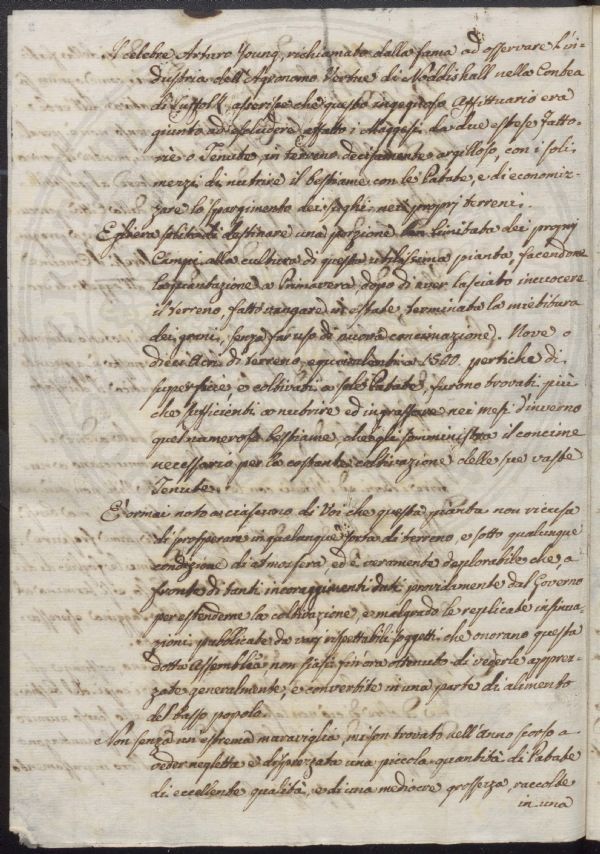 Il celebre Arturo Young, richiamato dalla fama ad osservare l'in-
dustria dell'Agronomo Vertue di Noddishall nella Contea
di Suffolk, asserisce che questo ingegnoso Affittuario era
giunto ad escludere affatto i Maggesi da due estese Fatto-
rie o Tenute, in terreno decisamente argilloso, con i soli
mezzi di nutrire il bestiame con le Patate, e di economiz-
zare lo spargimento dei sughi nei proprj terreni.
Egli era solito di destinare una porzione ben limitata dei proprj
Campi alla cultura di questa utilissima pianta, facendone
la piantazione a Primavera dopo di aver lasciato incuocere
il terreno, fatto vangare in estate terminata la mietitura
dei grani, senza far uso di alcuna concimazione. Nove o
dieci Acri di terreno equivalenti a 1500 pertiche di
superficie e coltivati a sole Patate, furono trovati più
che sufficienti a nutrire ed ingrassare nei mesi d'inverno
quel numeroso bestiame, che gli somministra il concime
necessario per la costante coltivazione delle sue vaste
Tenute.
È ormai noto a ciascuno di Voi che questa pianta non ricusa
di prosperare in qualunque sorta di terreno, e sotto qualunque
condizione di atmosfera, ed è veramente deplorabile che a
fronte di tanti incoraggimenti dati providamente dal Governo
per estenderne la coltivazione, e malgrado le replicate insinua-
zioni pubblicate da varj rispettabili soggetti, che onorano questa
dotta Assemblea non siasi fin'ora ottenuto di vederle apprez-
zate generalmente, e convertite in una parte di alimento
del basso popolo.
Non senza un'estrema maraviglia, mi son trovato nell'anno scorso a
veder negletta e disprezzata una piccola quantità di Patate
di eccellente qualità, e di una mediocre grossezza, raccolte
in una